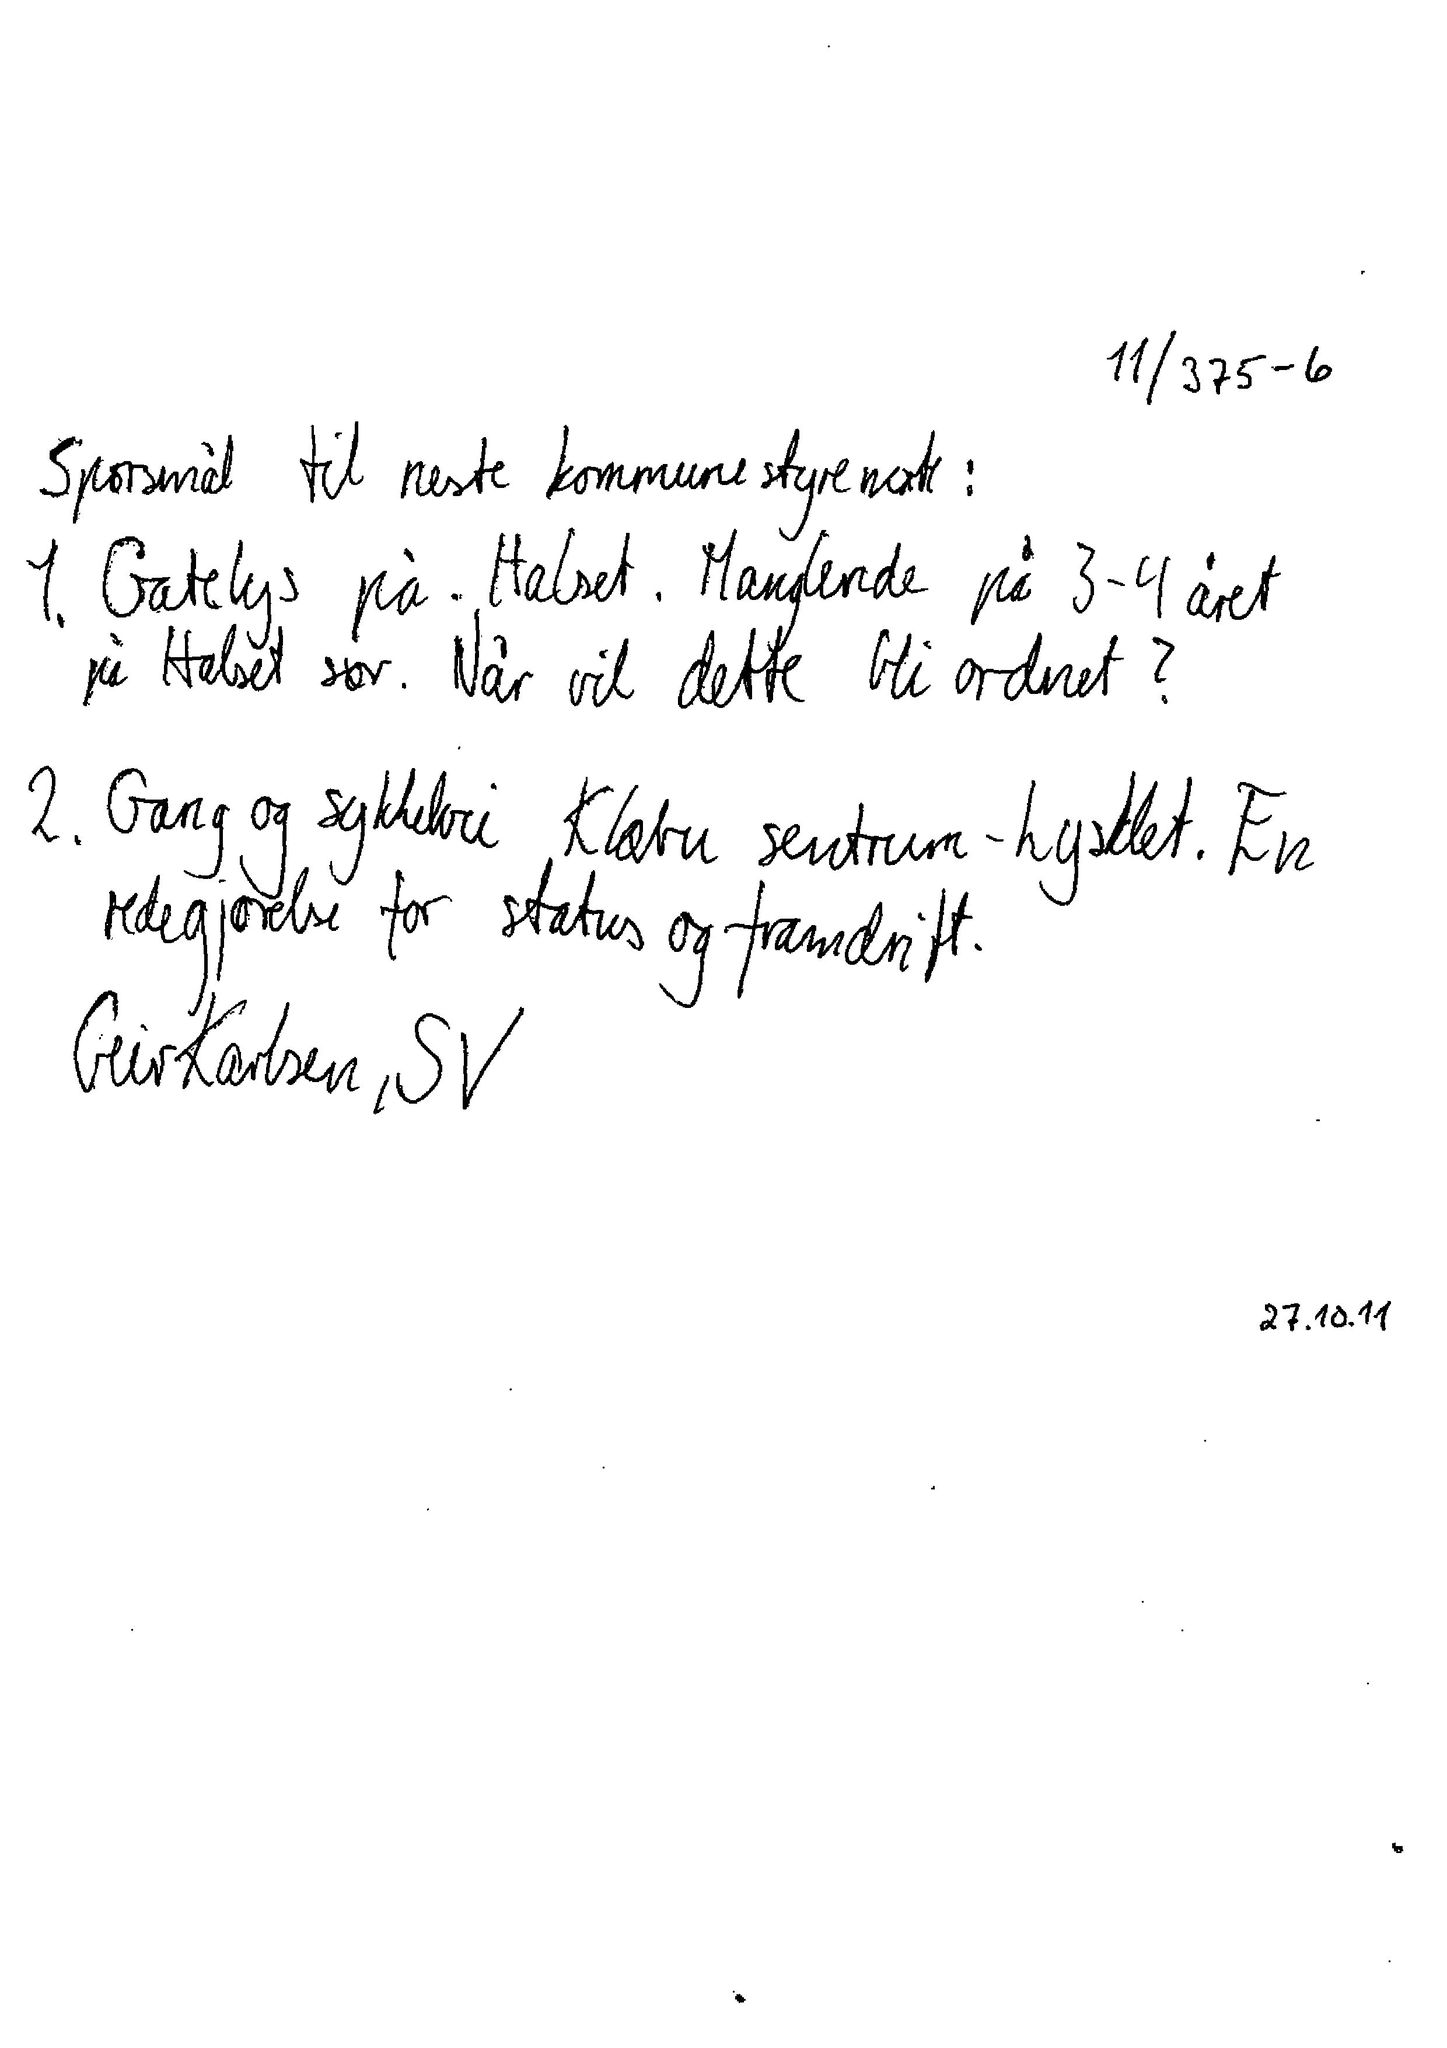 11/375-6
Spørsmål til neste kommunestyremøte:
1. Gatelys på Halset. Manglende på 3-4 året
på Halset sør. Når vil dette bli ordnet?
2. Gang og sykkelvei Klæbu sentrum-hyttlet. En
redegjørelse for status og framdrift.
Geir Karlsen, SV
27.10.11